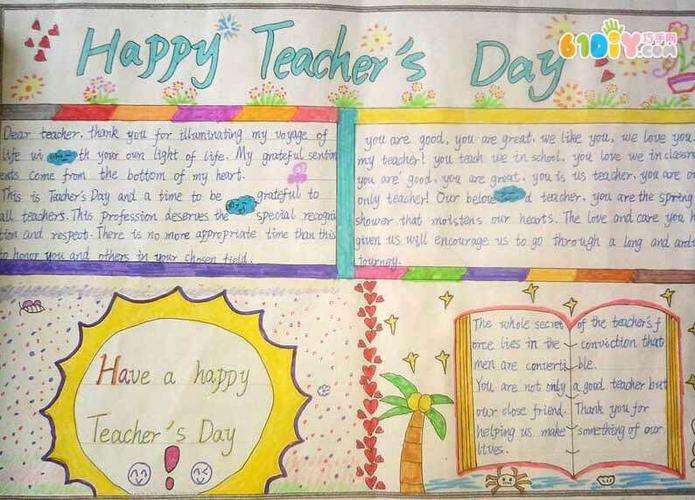 Happy Teacher's Day
61DIY巧手网
.com
Dear teacher, thank you for illuminating my voyage of
life wi th your own light of life. My grateful sentim
ents come from the bottom of my heart.
This is Tacher's Day and a time to be grateful to
all teachers. This profession deserves the special recogni
tion and respect. There is no more appropriate time than this
to honor you and others in your chosen field.
you are good, you are great, we like you, we love you
my teacher! you teach we in school, you love we in classroom
you are good, you are great, you is us teacher, you are our
only teacher! Our belove d teacher, you are the spring
shower that moistens our hearts. The love and care you h
given us will encourage us to go through a long and
journey.
Have a happy
Teacher's Day
The whole secret of the teacher's f
orce lies in the conviction that
men are converti ble.
You are not only a good teacher but
our close friend. Thank you for
helping us make something of our
lives.